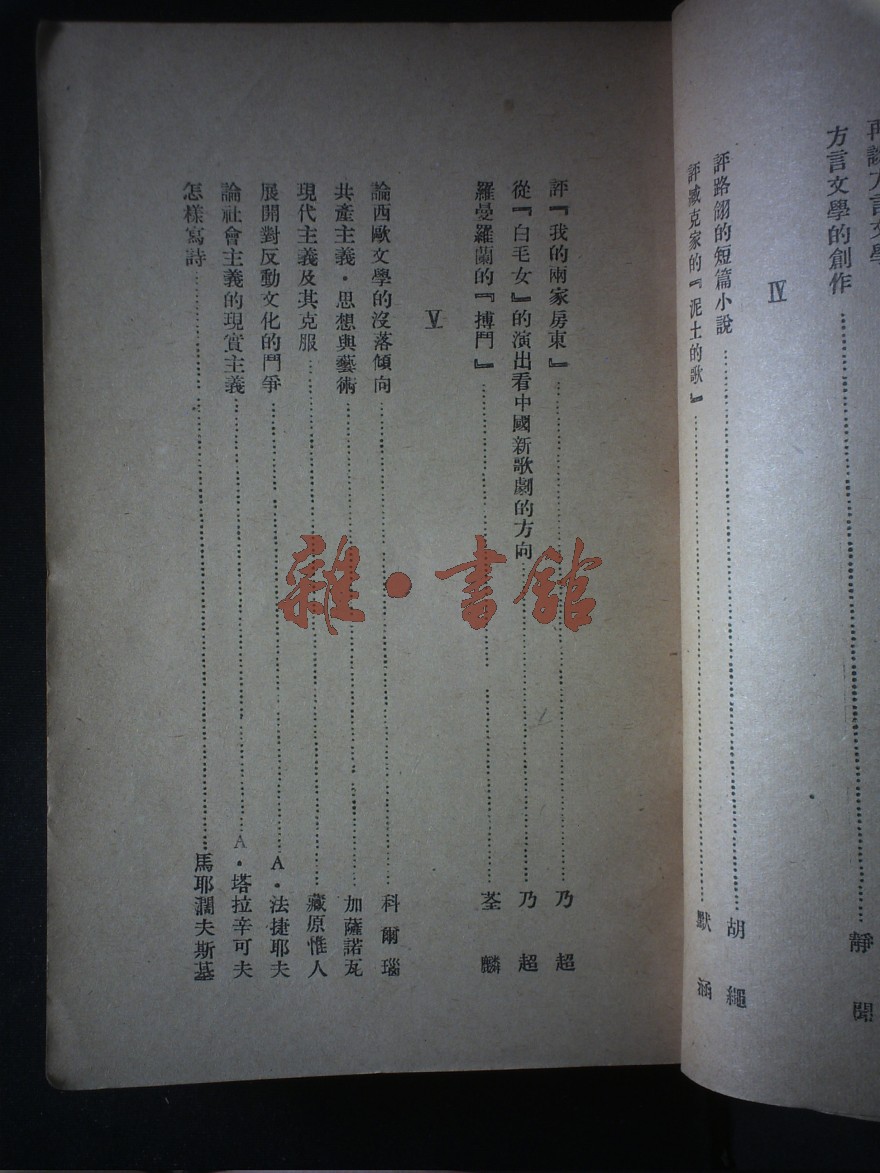 方言文學的創作 靜聞
IV
評路翎的短篇小說 胡繩
評臧克家的『泥土的歌』 默涵
評『我的兩家房東』 乃超
從『白毛女』的演出看中國新歌劇的方向 乃超
羅曼羅蘭的『搏鬥』 荃麟
V
論西歐文學的沒落傾向 科爾瑙
共產主義・思想與藝術 加薩諾瓦
現代主義及其克服 藏原惟人
展開對反動文化的鬥爭 A・法捷耶夫
論社會主義的現實主義 A・塔拉辛可夫
怎樣寫詩 馬耶濶夫斯基
雜・書館